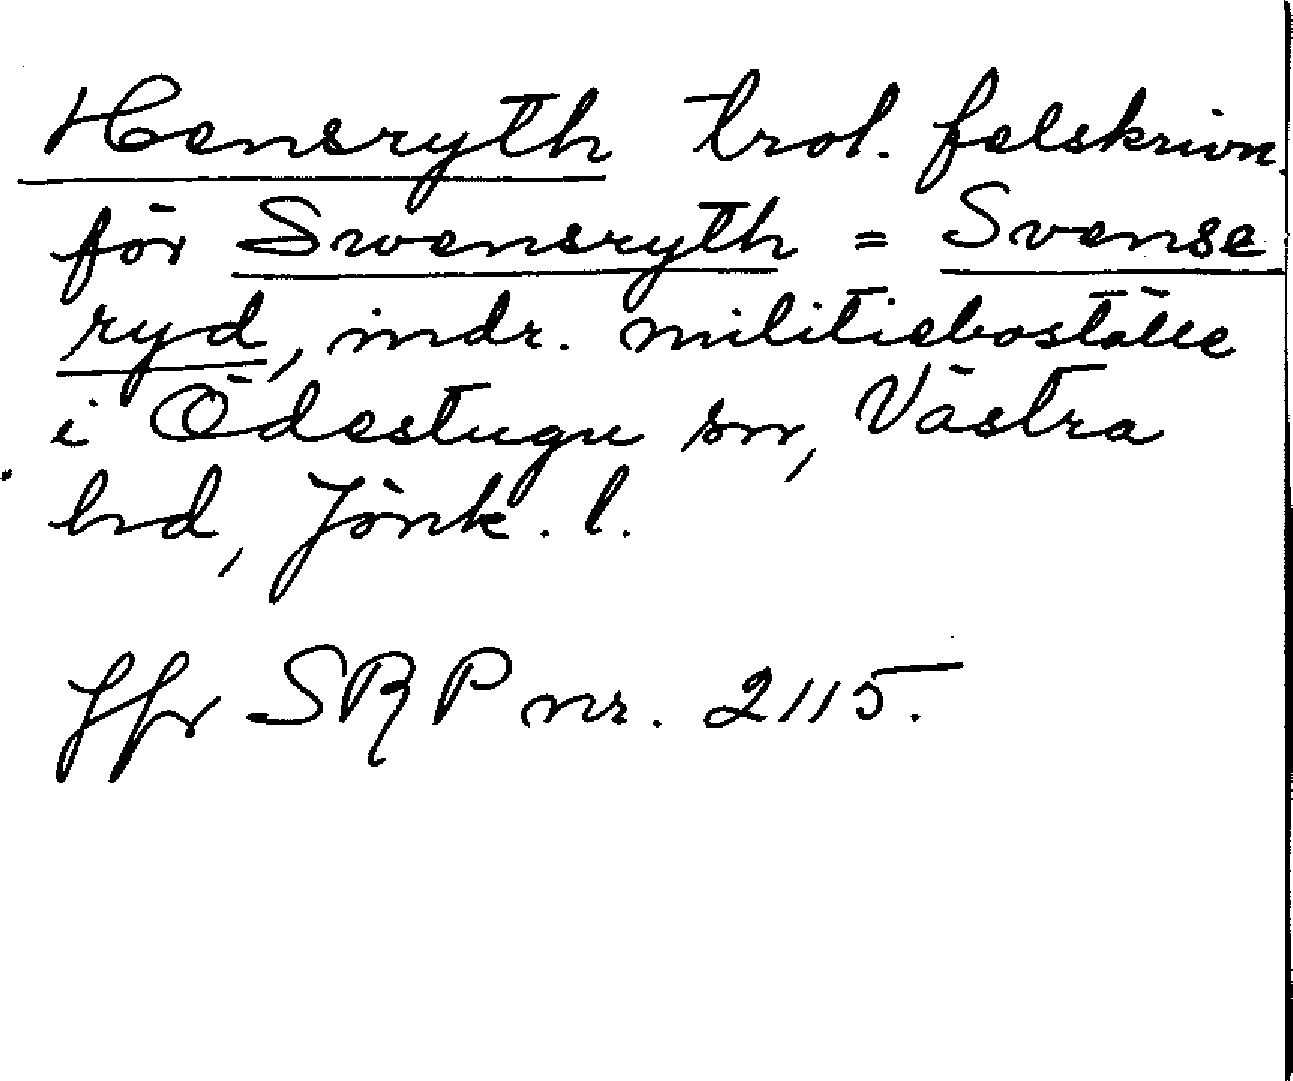 Hensryth trol. felskrivn.
för Swensryth = Svense
ryd, indr. militieboställe
i Ödestugu sn, Västra
hd, Jönk. l.
Jfr SRP nr. 2115.